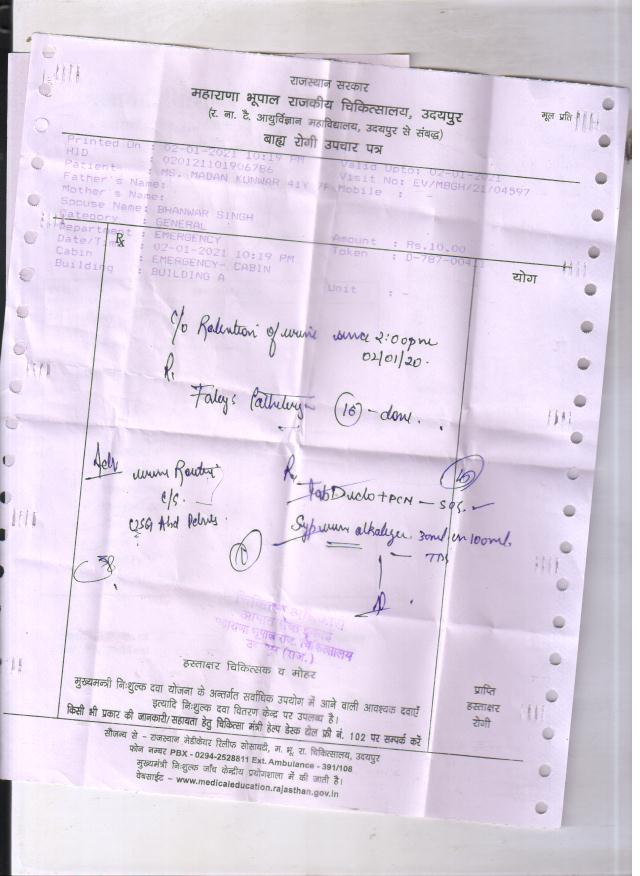 राजस्थान सरकार
महाराणा भूपाल राजकीय चिकित्सालय, उदयपुर
(र. ना. टै. आयुर्विज्ञान महाविद्यालय, उदयपुर से संबद्ध)
मूल प्रति
बाह्य रोगी उपचार पत्र
Printed On : 02-01-2021 10:19 PM Valid Upto: 02-01-2021
HID : 020121101906786 Visit No: EV/MBGH/21/04597
Patient : MS. MADAN KUNWAR 41Y /F Mobile : -
Father's Name:
Mother's Name:
Spouse Name: BHANWAR SINGH
Category : GENERAL Amount : Rs.10.00
Department : EMERGENCY Token : D-787-00411
Date/Time : 02-01-2021 10:19 PM
Cabin : EMERGENCY- CABIN
Building : BUILDING A Unit : -
Rx
योग
C/o Retention of urine since 2:00pm
02/01/20.
R.
Foley's (16) - done.
Adv urine Routine
C/S.
USG Abd Pelvis.
Rx
Tab Diclo + PCM - SOS. ✓
Syp urine alkalizer 30ml in 100ml.
- TDS
चिकित्सा अधिकारी
महाराणा भूपाल राज. चिकित्सालय
उदयपुर (राज.)
हस्ताक्षर चिकित्सक व मोहर
मुख्यमन्त्री निःशुल्क दवा योजना के अन्तर्गत सर्वाधिक उपयोग में आने वाली आवश्यक दवाएँ
इत्यादि निःशुल्क दवा वितरण केन्द्र पर उपलब्ध है।
किसी भी प्रकार की जानकारी/सहायता हेतु चिकित्सा मंत्री हेल्प डेस्क टोल फ्री नं. 102 पर सम्पर्क करें
प्राप्ति
हस्ताक्षर
रोगी
सौजन्य से - राजस्थान मेडीकेयर रिलीफ सोसायटी, म. भू. रा. चिकित्सालय, उदयपुर
फोन नम्बर PBX - 0294-2528811 Ext. Ambulance - 391/108
मुख्यमंत्री निःशुल्क जाँच केन्द्रीय प्रयोगशाला में की जाती है।
वेबसाईट - www.medicaleducation.rajasthan.gov.in